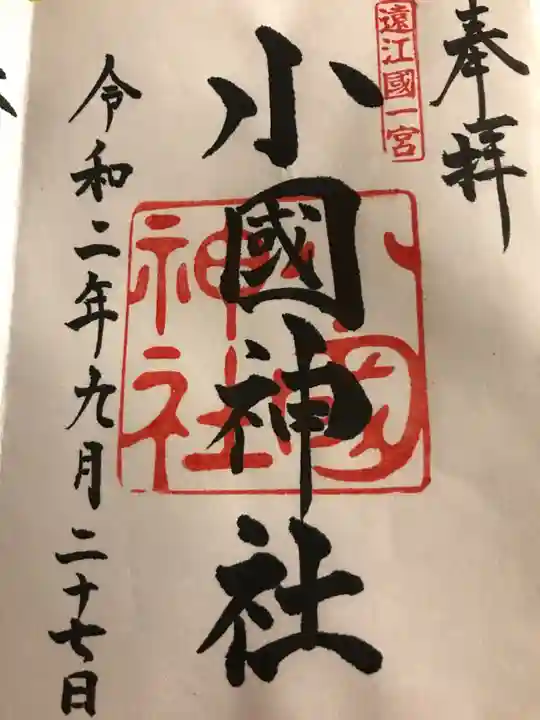 奉拝
遠江國一宮
小國神社
小國神社
令和二年九月二十七日